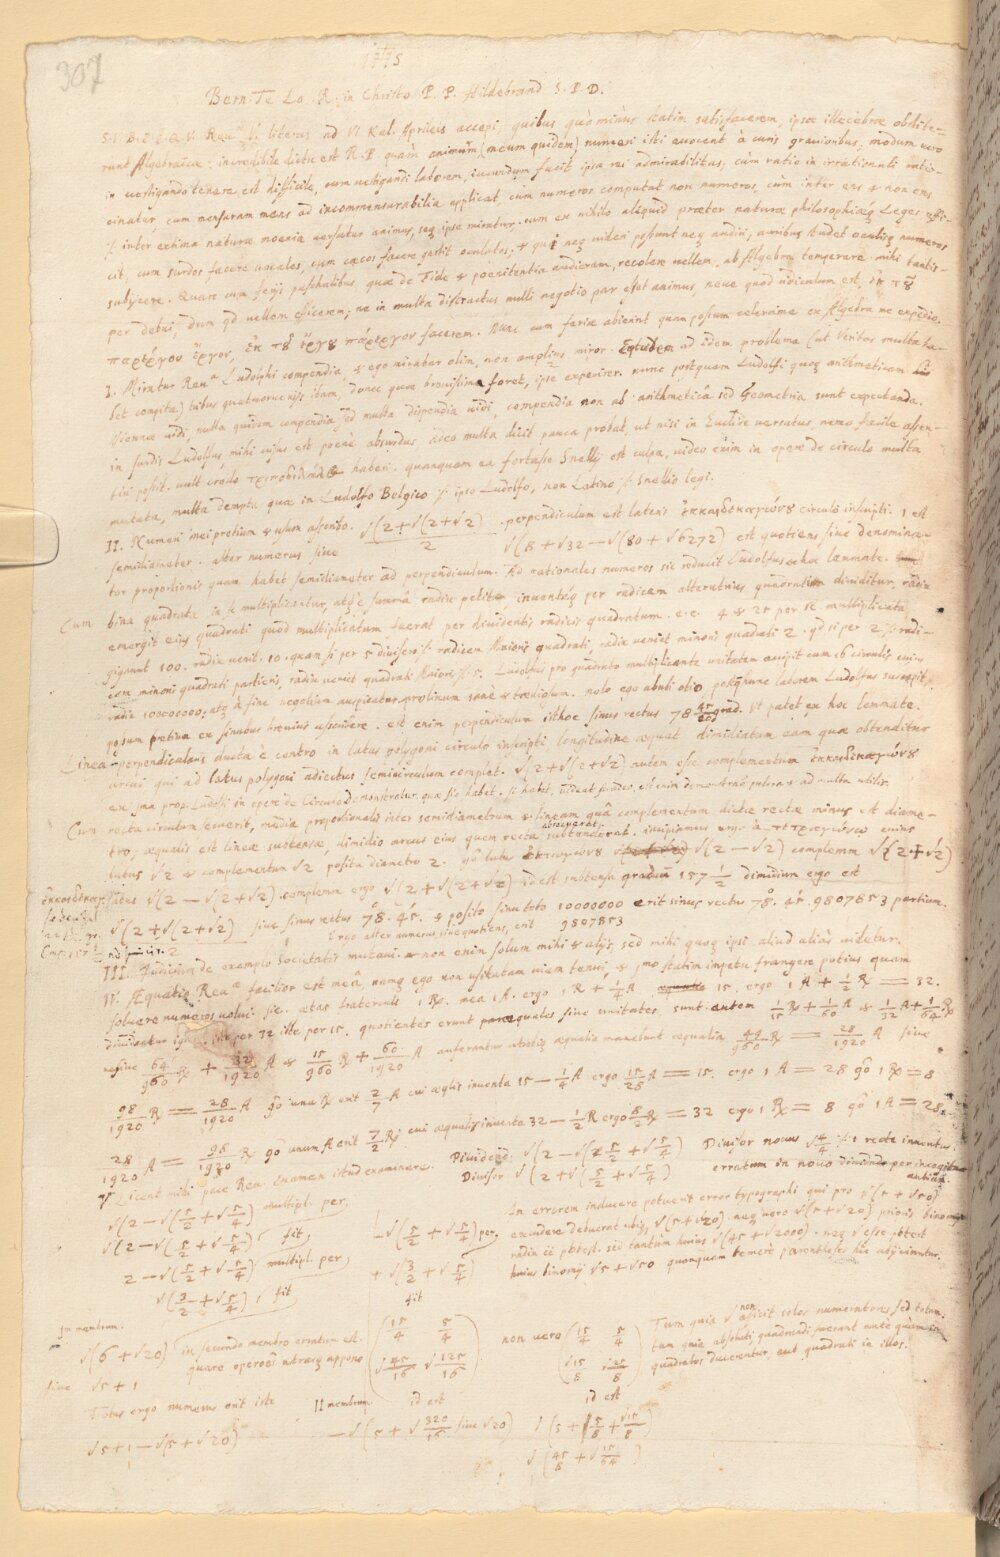 307
Bern. Te Lo. R. in Christo P. P. Hildebrand S. P. D.
literas ad VI Kal. Aprileis accepi, quibus quominùs statim satisfacerem, ipsæ illecebræ obstite-
runt Algebraicæ: incredibile dictu est R. P. quàm animum (meum quidem) numeri isti avocent à curis gravioribus, modum vero
in vestigando tenere est difficile, eum vestigandi laborem, iucundum facit ipsa rei admirabilitas; cùm ratio in irrationali ratio-
cinatur, cum mensuram mens ad incommensurabilia applicat, cùm numeros computat non numeros, cùm inter ens & non ens
inter extima naturæ moenia versatur animus, seq ipse miratur, cum ex nihilo aliquid præter naturæ philosophiæq Leges effi-
cit, cum surdos facere vocales, cum cæcos facere gestit oculatos, & qui neq videri possunt neq audiri, auribus studet oculisq numeros
subijcere. Quare cum ferijs paschalibus quæ de Fide & poenitentia audieram, recolere vellem, ab Algebra temperare mihi tantis-
per debui, dum qd vellem efficerem; ne in multa distractus nulli negotio par esset animus, neve quod ridiculum est, ἐκ τοῦ
παρέργου ἔργον, ἐκ τοῦ ἔργου πάρεργον facerem. Nunc cum feriæ abierint quam possum celerrime ex Algebra me expedio.
I. Miratur Ren.ª Ludolphi compendia, & ego mirabar olim, non amplius miror. ad idem problema (ut Veritas multa ha-
bet compita) tribus quatuorvenijs itum, donec quæ brevissima foret, ipse experirer. nunc postquam Ludolfi quoq arithmeticam
Viennæ vidi, nulla quidem compendia sed multa dispendia vidi, compendia non ab arithmeticâ sed Geometria sunt expectanda.
in surdis Ludolfus, mihi visus est poenè absurdus adeo multa dicit pauca probat, ut nisi in Euclide versatus, nemo facile assen-
tiri possit. haberi. quanquam ea fortasse Snellij est culpa, video enim in opere de circulo multa
mutata, multa dempta quæ in Ludolfo Belgico /: ipso Ludolfo, non Latino /: Snellio legi.
II. Numeri mei pretium & usum ascribo. √(2+√(2+√2)) / 2 . perpendiculum est lateris ἑκκαιδεκαγώνου circulo inscripti. 1 est
semidiameter. alter numerus sive √(8+√32−√(80+√6272) est quotiens sive denomina-
tor proportionis quam habet semidiameter ad perpendiculum. Ad rationales numeros sic reducit Ludolfus ex hoc lemmate.
Cum bina quadrata in se multiplicantur, atq è summâ radix petitur, inventaq per radicem alterutrius quadratim dividitur, radix
emergit eius quadrati quod multiplicatum fuerat per dividentis radicis quadratum. e.c. 4 & 25 per se multiplicata
gignunt 100. radix venit. 10. quam si per 5 divisero /: radicem Maioris quadrati, radix veniet minoris quadrati 2. qd si per 2 /: radi-
cem minoris quadrati partieris, radix veniet quadrati Maioris /: 5. Ludolfus pro quadrato multiplicante unitatem accipit cum 16 circulis cuius
radix 100000000: atq à fine negotium auspicatur, prolixum sanè & tædiosum. nolo ego abuti otio, postq nunc laborem Ludolfus suscepit,
possum pretium ex sinubus brevius asscribere. est enim perpendiculum isthoc sinus rectus 78 45/60 grad. Ut patet ex hoc lemmate.
Linea perpendicularis ducta è centro in latus polygoni circulo inscripti longitudine æquat dimidiatam eam quæ obtenditur
arcui qui ad latus polygoni adiectus semicirculum complet. √(2+√(2+√2) autem esse complementum ἑκκαιδεκαγώνου
ex 3ia prop. Ludolfi in opere de Circulo demonstratur, quæ sic habet.
Cum recta circulum secuerit, media proportionalis inter semidiametrum & lineam quâ complementum dictæ rectæ minus est diame-
tro, æqualis est lineæ subtensæ, dimidio arcus eius quem recta subtenderat. incipiamus ergo à τετραγώνω cuius
latus √2 & complementum √2 posita diametro 2. gô latus ὀκταγώνου √(2−√2) complemen √(2+√2)
ἑκκαιδεκαγ. latus √(2−√(2+√2). complemen ergo √(2+√(2+√2) id est subtensa graduum 157 1/2 dimidium ergo est
√(2+√(2+√2) / 2 sive sinus rectus 78. 45. & posito sinu toto 10000000 erit sinus rectus 78. 45. 9807853 partium.
Ergo alter numerus, sive quotiens, erit 9807853
III. Iudicium de exemplo Societatis mutavi. non enim solum mihi & alijs, sed mihi quoq ipsi aliud aliàs videtur.
IV. Æquatio Ren.ª facilior est meâ, namq ego non usitatam viam tenui, & 1mo statim impetu frangere potius quam
solvere numeros volui. sic. ætas fraterculi 1 R. mea 1A. ergo 1R + 1/4 A 15. ergo 1A + 1/2 R = 32.
dividantur per 32 iste per 15. quotientes erunt æquales sive unitates, sunt autem 1/15 R + 1/60 A & 1/32 A + 1/64 R
64/960 R + 32/1920 A & 15/960 R + 60/1920 A auferantur utrobiq æqualia manebunt æqualia 49/960 R = 28/1920 A sive
98/1920 R = 28/1920 A gô una R erit 2/7 A cui æqlis inventa 15 − 1/4 A ergo 15/28 A = 15. ergo 1A = 28 gô 1R = 8
28/1920 A = 98/1920 R gô unum A erit 7/2 R cui æqualis inventa 32 − 1/2 R ergo 8/2 R = 32 ergo 1R = 8 gô 1A = 28.
V. Liceat mihi pace Ren. examen istud examinare.
Dividend: √(2−√(5/2+√5/4)
Divisor √(2+√(5/2+√5/4)
Divisor novus √4/4 /: 1 recte inventus
erratum in novo dividendo per incogitantiam.
√(2−√(5/2+√5/4) multipl. per,
√(2−√(5/2+√5/4) fit,
2−√(5/2+√5/4) multipl. per
√(3/2+√5/4), fit
−√(5/2+√5/4) per,
+√(3/2+√5/4)
fit
In errorem inducere potuerit error typographi qui pro √(5+√50)
excudere debuerat ubiq, √(5+√20). neq vero √(5+√20) prioris binomij
radix eê potest. sed tantùm huius √(45+√2000). neq √ esse potest
huius binomij √5+√50 quanquam temerè parentheses hic adijciantur.
In membrum.
√(6+√20) in secundo membro erratum est.
quare operoês utrasq appono
sive √5+1
15/4 5/4
√45/16 √125/16
non vero 15/4 5/4
√15/8 √25/8
Tum quia √ non afficit solos numeratores sed totum.
tum quia absoluti quadrandi fuerant antè quam in
quadratos ducerentur aut quadrati in illos.
Totus ergo numerus erit iste
√5+1−√(5+√20)
II membrum id est
−√(5+√320/16 sive √20)
id est
√(5+15/8+√15/8)
√(45/8+√15/64)